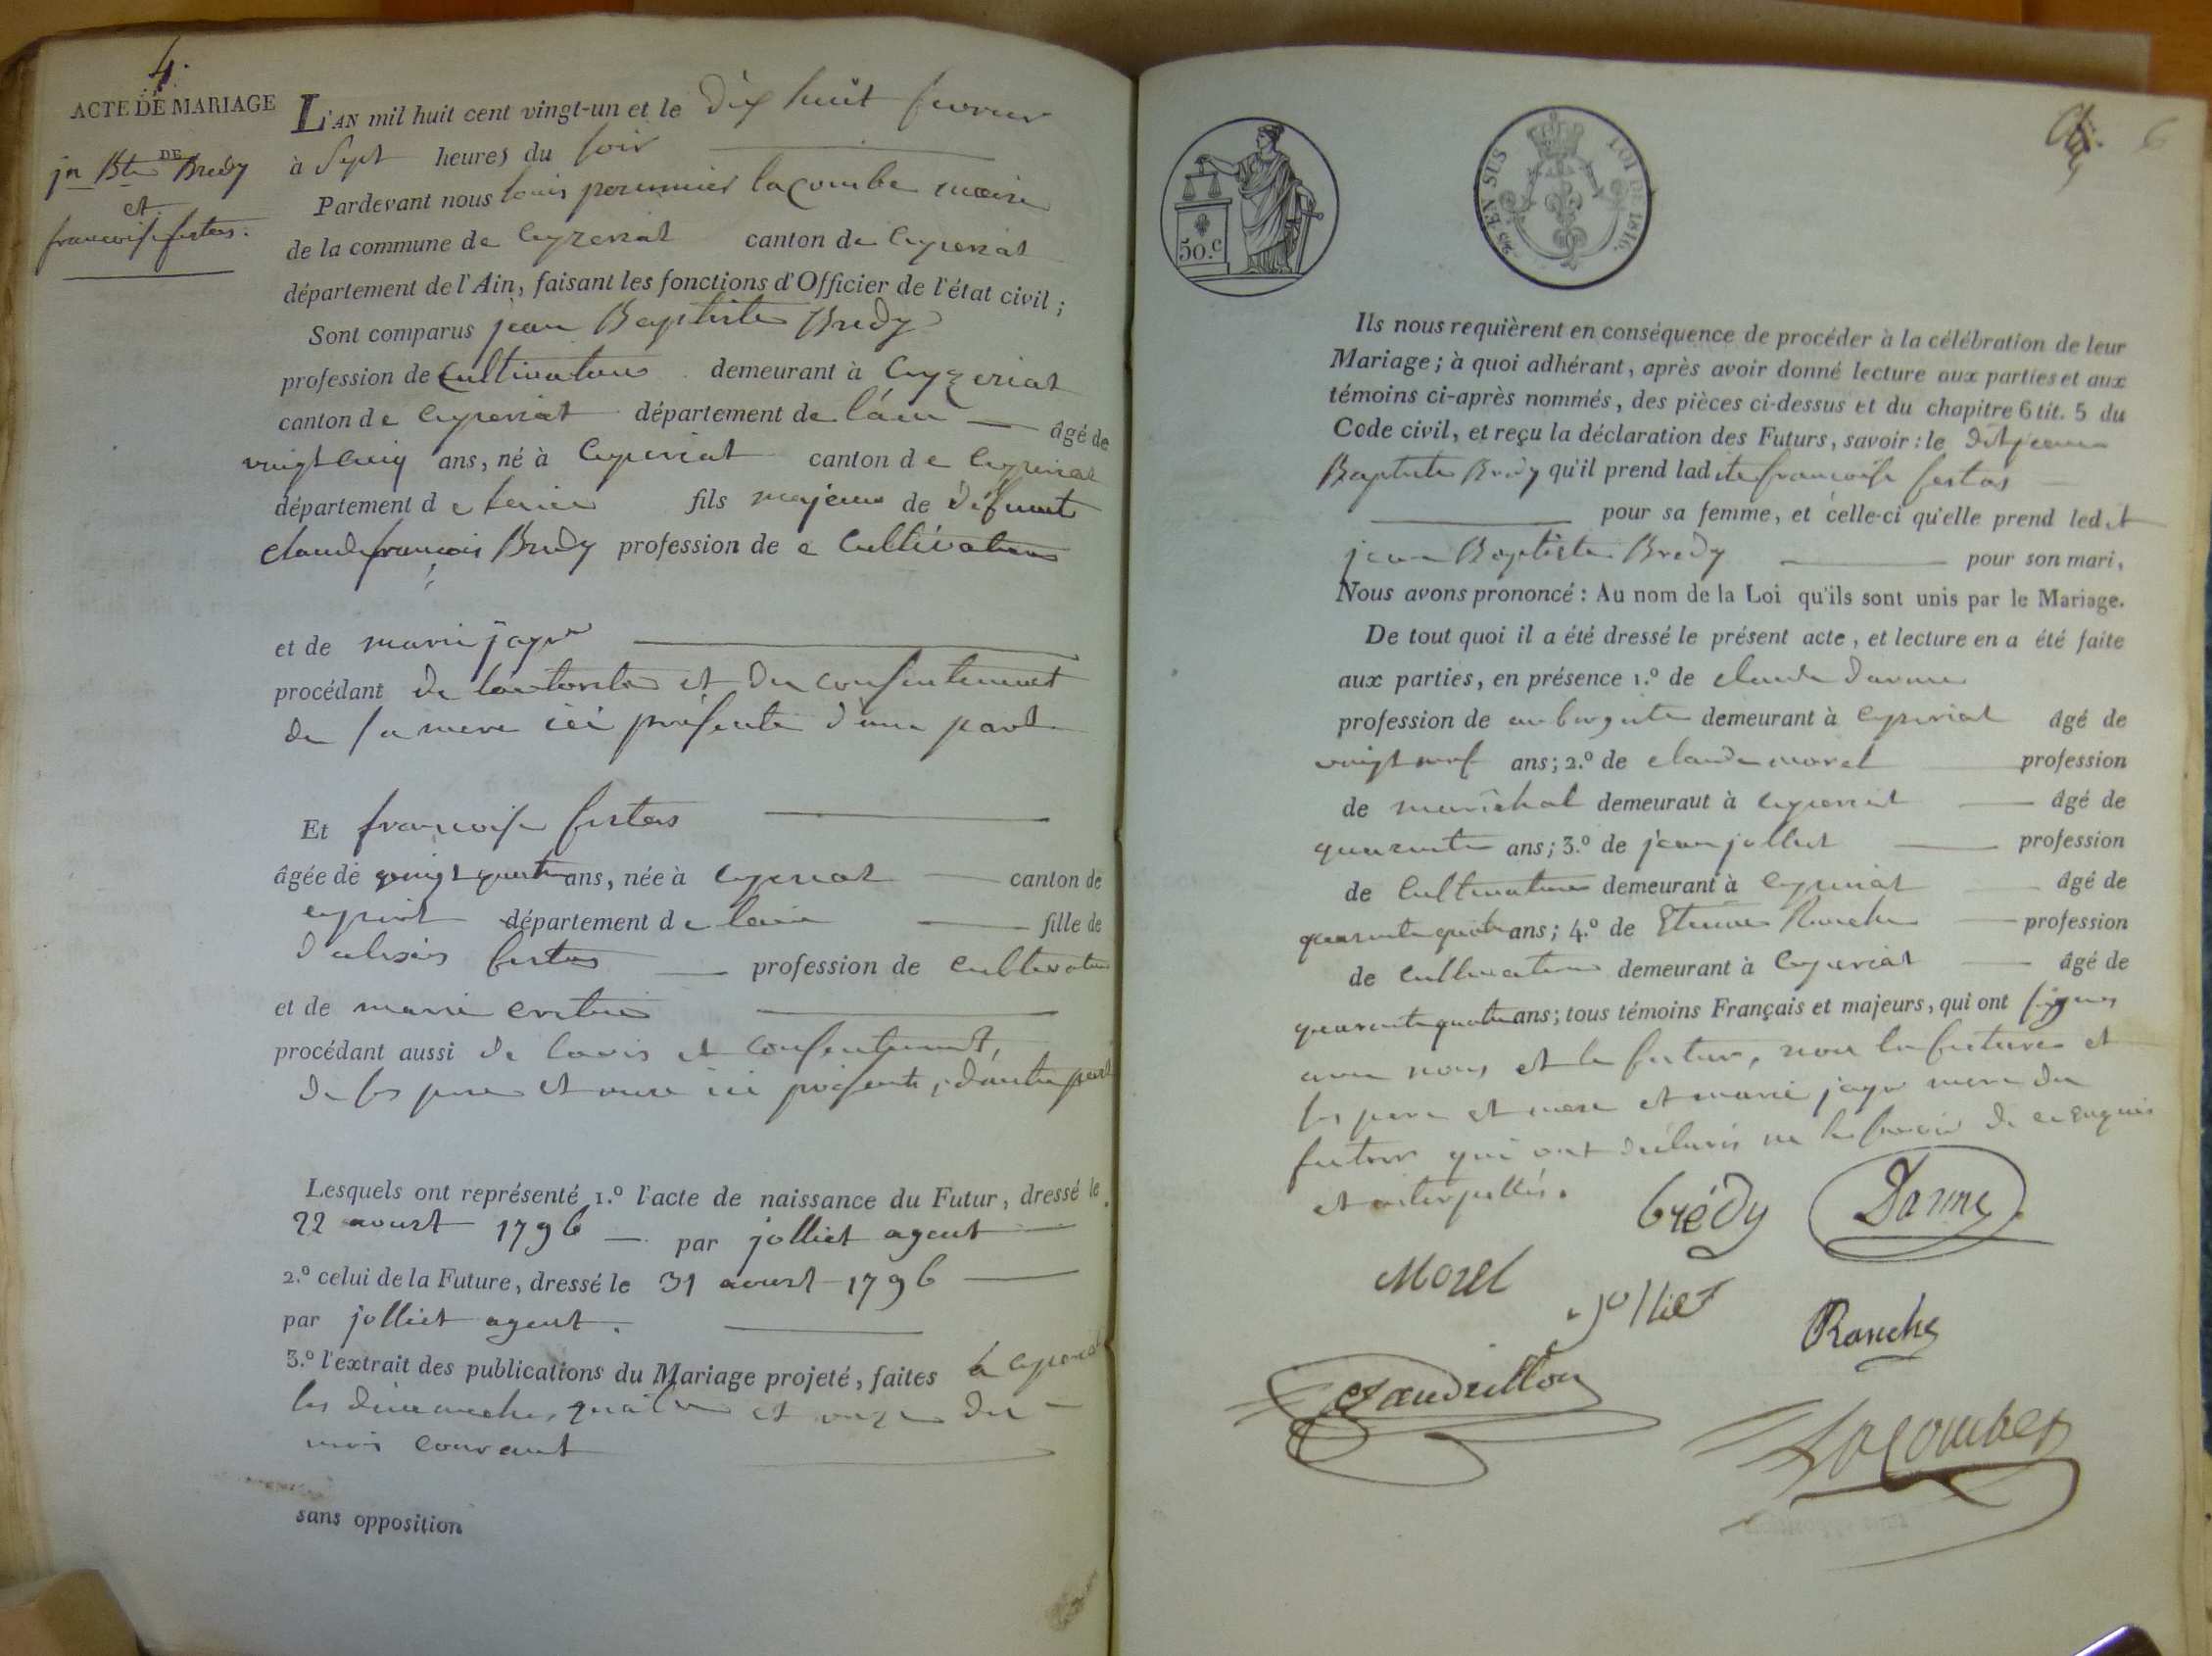 4.
ACTE DE MARIAGE
DE
jn Bte Bredy
et
francoise festas.
L'AN mil huit cent vingt-un et le dix huit fevrier
à Sept heures du soir
Pardevant nous louis perunnier lacombe maire
de la commune de Ceyzeriat canton de Ceyzeriat
département de l'Ain, faisant les fonctions d'Officier de l'état civil ;
Sont comparus jean Baptiste Bredy
profession de Cultivateur demeurant à Ceyzeriat
canton de Ceyzeriat département de l'ain âgé de
vingt cinq ans, né à Ceyzeriat canton de Ceyzeriat
département de lain fils majeur de défunt
claude françois Bredy profession de Cultivateur
et de marie jayr
procédant de lautorité et du consentement
de sa mere ici présente d'une part
Et francoise festas
âgée de vingt quatre ans, née à Ceyzeriat canton de
Ceyzeriat département de lain fille de
d'alexis festas profession de Cultivateur
et de marie
procédant aussi de lavis et consentement,
de ses pere et mere ici présents, d'autre part
Lesquels ont représenté 1.º l'acte de naissance du Futur, dressé le
22 aoust 1796 par jolliet agent
2.º celui de la Future, dressé le 31 aoust 1796
par jolliet agent.
3.º l'extrait des publications du Mariage projeté, faites à Ceyzeriat
les dimanches quatre et onze du
mois courant
sans opposition
50.c
EN SUS
LOI DE 1816.
6
Ils nous requièrent en conséquence de procéder à la célébration de leur
Mariage ; à quoi adhérant, après avoir donné lecture aux parties et aux
témoins ci-après nommés, des pièces ci-dessus et du chapitre 6 tit. 5 du
Code civil, et reçu la déclaration des Futurs, savoir : le dit jean
Baptiste Bredy qu'il prend ladite francoise festas
pour sa femme, et celle-ci qu'elle prend ledit
jean Baptiste Bredy pour son mari,
Nous avons prononcé : Au nom de la Loi qu'ils sont unis par le Mariage.
De tout quoi il a été dressé le présent acte, et lecture en a été faite
aux parties, en présence 1.º de claude darme
profession de aubergiste demeurant à Ceyzeriat âgé de
vingt neuf ans ; 2.º de claude morel profession
de maréchal demeuraut à Ceyzeriat âgé de
quarante ans ; 3.º de jean jolliet profession
de Cultivateur demeurant à Ceyzeriat âgé de
quarante quatre ans ; 4.º de Etienne Ranche profession
de Cultivateur demeurant à Ceyzeriat âgé de
quarante quatre ans ; tous témoins Français et majeurs, qui ont signés
avec nous et le futur, non la future et
ses pere et mere et marie jayr mere du
futur qui ont déclarés ne le savoir de ce enquis
et interpellés.
brédy
Darme
Morel
Jolliet
Ranche
Lacombe